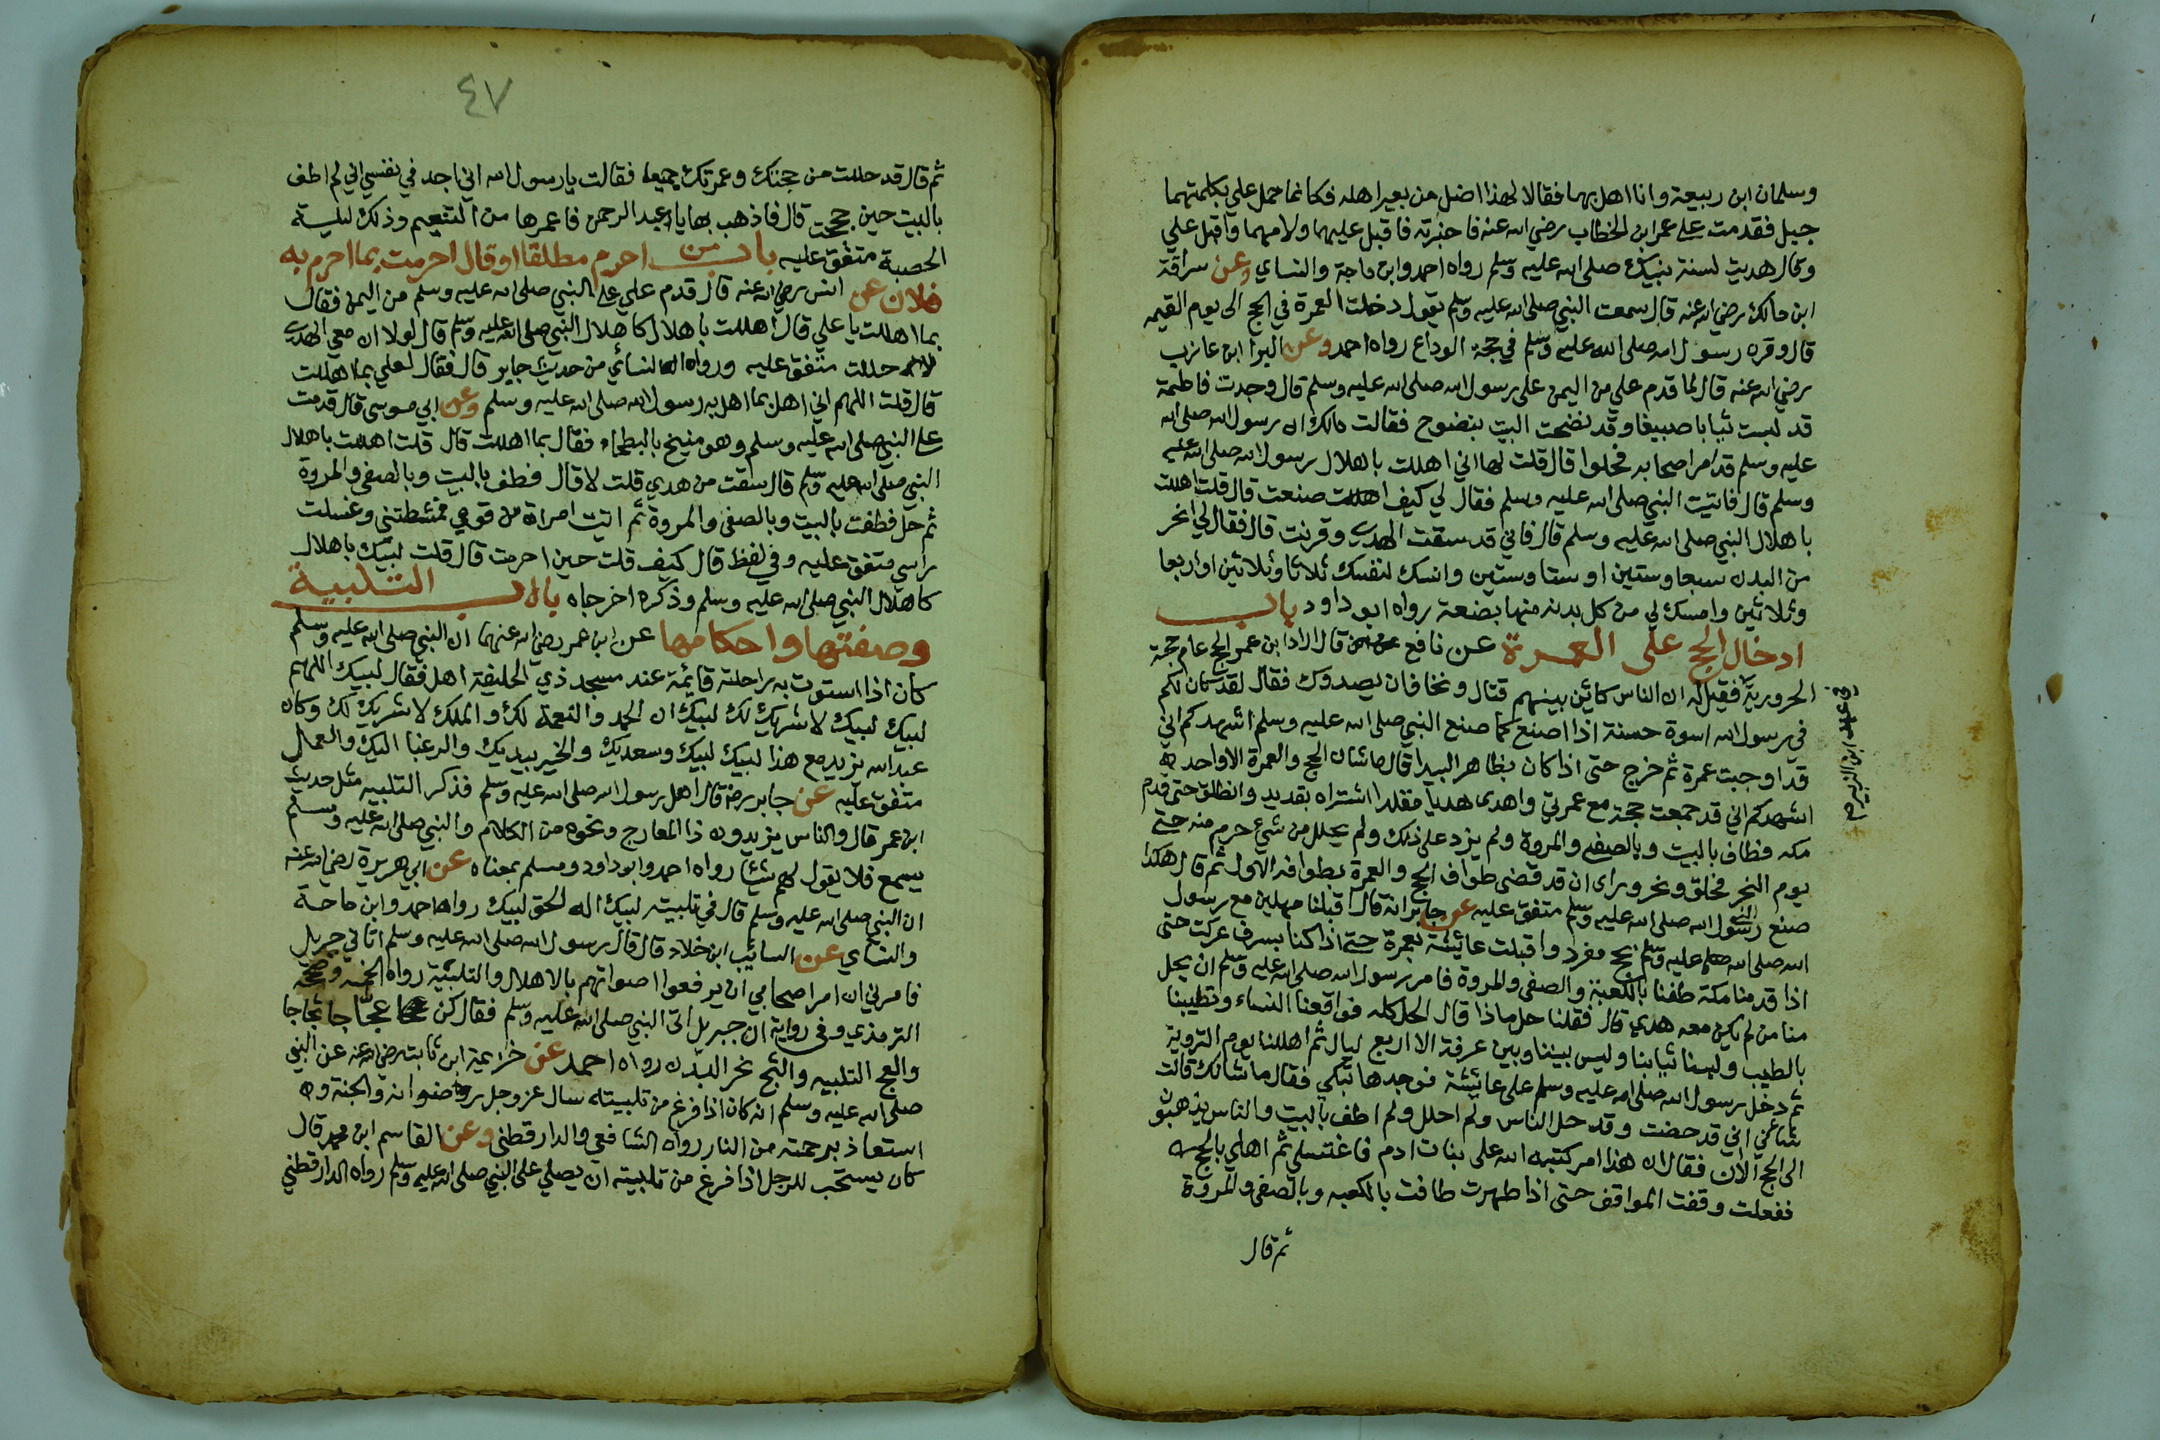 وسلمان ابن ربيعة وانا اهل بهما فقالا لهذا اضل من بعير اهله فكانما حمل علي بكلمتهما
جبل فقدمت على عمر ابن الخطاب رضي الله عنه فاخبرته فاقبل عليهما ولامهما واقبل علي
وقال هديت لسنة نبيك صلى الله عليه وسلم رواه احمد وابن ماجة والنساي وعن سراقة
ابن مالك رضي الله عنه قال سمعت النبي صلى الله عليه وسلم يقول دخلت العمرة في الحج الى يوم القيمه
قال وقرن رسول الله صلى الله عليه وسلم في حجة الوداع رواه احمد وعن البرا ابن عازب
رضي الله عنه قال لما قدم علي من اليمن على رسول الله صلى الله عليه وسلم قال وجدت فاطمة
قد لبست ثيابا صبيغا وقد نضحت البيت بنضوح فقالت مالك ان رسول الله صلى الله
عليه وسلم قد امر اصحابه فحلوا قال قلت لها اني اهللت باهلال رسول الله صلى الله عليه
وسلم قال فاتيت النبي صلى الله عليه وسلم فقال لي كيف صنعت قال قلت اهللت
باهلال النبي صلى الله عليه وسلم قال فاني قد سقت الهدي وقرنت قال فقال لي انحر
من البدن سبعا وستين او ستا وستين وانسك لنفسك ثلاثا وثلاثين او اربعا
وثلاثين وامسك لي من كل بدنه منها بضعة رواه ابو داود باب
ادخال الحج على العمرة عن نافع قال اراد ابن عمر الحج عام حجة
الحرورية فقيل له ان الناس كائن بينهم قتال ونخاف ان يصدوك فقال لقد كان لكم
في رسول الله اسوة حسنة اذا اصنع كما صنع النبي صلى الله عليه وسلم اشهدكم اني
قد اوجبت عمرة ثم خرج حتى اذا كان بظاهر البيدا قال ما شان الحج والعمرة الا واحد
اشهدكم اني قد جمعت حجة مع عمرتي واهدى هديا مقلدا اشتراه بقديد وانطلق حتى قدم
مكه فطاف بالبيت وبالصفى والمروة ولم يزد على ذلك ولم يحلل من شيء حرم منه حتى
يوم النحر فحلق ونحر وراى ان قد قضى طواف الحج والعمرة بطوافه الاول ثم قال هكذا
صنع رسول الله صلى الله عليه وسلم متفق عليه عن جابر انه قال اقبلنا مهلين مع رسول
الله صلى الله عليه وسلم بحج مفرد واقبلت عائشة بعمرة حتى اذا كنا بسرف عركت حتى
اذا قدمنا مكة طفنا بالكعبة والصفى والمروة فامر رسول الله صلى الله عليه وسلم ان يحل
منا من لم يكن معه هدي قال فقلنا حل ماذا قال الحل كله فواقعنا النساء وتطيبنا
بالطيب ولبسنا ثيابنا وليس بيننا وبين عرفة الا اربع ليال ثم اهللنا يوم التروية
ثم دخل رسول الله صلى الله عليه وسلم على عائشة فوجدها تبكي فقال ما شانك قالت
شاني اني قد حضت وقد حل الناس ولم احلل ولم اطف بالبيت والناس يذهبون
الى الحج الان فقال ان هذا امر كتبه الله على بنات ادم فاغتسلي ثم اهلي بالحج
ففعلت وقفت المواقف حتى اذا طهرت طافت بالكعبه وبالصفى والمروة
ثم قال
ابن الزبير
٤٧
ثم قال قد حللت من حجتك وعمرتك جميعا فقالت يا رسول الله اني اجد في نفسي اني لم اطف
بالبيت حين حججت قال فاذهب بها يا عبد الرحمن فاعمرها من التنعيم وذلك ليلة
الحصبة متفق عليه باب من احرم مطلقا او قال احرمت بما احرم به
فلان عن انس رضي الله عنه قال قدم علي على النبي صلى الله عليه وسلم من اليمن فقال
بما اهللت يا علي قال اهللت باهلال كاهلال النبي صلى الله عليه وسلم قال لولا ان معي الهدي
لاحللت متفق عليه ورواه النسائي من حديث جابر قال فقال لعلي بما اهللت
قال قلت اللهم اني اهل بما اهل به رسول الله صلى الله عليه وسلم وعن ابي موسى قال قدمت
على النبي صلى الله عليه وسلم وهو منيخ بالبطحاء فقال بما اهللت قال قلت اهللت باهلال
النبي صلى الله عليه وسلم قال سقت من هدي قلت لا قال فطف بالبيت وبالصفى والمروة
ثم حل فطفت بالبيت وبالصفى والمروة ثم اتيت امراة من قومي فمشطتني وغسلت
راسي متفق عليه وفي لفظ قال كيف قلت حين احرمت قال قلت لبيك باهلال
كاهلال النبي صلى الله عليه وسلم وذكره اخرجاه باب التلبية
وصفتها واحكامها عن ابن عمر رضي الله عنهما ان النبي صلى الله عليه وسلم
كان اذا استوت به راحلته قائمة عند مسجد ذي الحليفة اهل فقال لبيك اللهم
لبيك لبيك لا شريك لك لبيك ان الحمد والنعمة لك والملك لا شريك لك وكان
عبد الله يزيد مع هذا لبيك لبيك وسعديك والخير بيديك والرغبا اليك والعمل
متفق عليه عن جابر رضه قال اهل رسول الله صلى الله عليه وسلم فذكر التلبيه مثل حديث
ابن عمر قال والناس يزيدون ذا المعارج ونحوه من الكلام والنبي صلى الله عليه وسلم
يسمع فلا يقول لهم شيئا رواه احمد وابو داود ومسلم بمعناه عن ابي هريرة رضي الله عنه
ان النبي صلى الله عليه وسلم قال في تلبيته لبيك اله الحق لبيك رواه احمد وابن ماجة
والنساي عن السائب ابن خلاد قال قال رسول الله صلى الله عليه وسلم اتاني جبريل
فامرني ان امر اصحابي ان يرفعوا اصواتهم بالاهلال والتلبية رواه الخمسه وصححه
الترمذي وفي رواية ان جبريل اتى النبي صلى الله عليه وسلم فقال كن عجاجا ثجاجا
والعج التلبيه والثج نحر البدن رواه احمد عن خزيمة ابن ثابت رضي الله عنه عن النبي
صلى الله عليه وسلم انه كان اذا فرغ من تلبيته سال عز وجل رضوانه والجنة و
استعاذ برحمته من النار رواه الشافعي والدارقطني وعن القاسم ابن محمد قال
كان يستحب للرجل اذا فرغ من تلبيته ان يصلي على النبي صلى الله عليه وسلم رواه الدارقطني